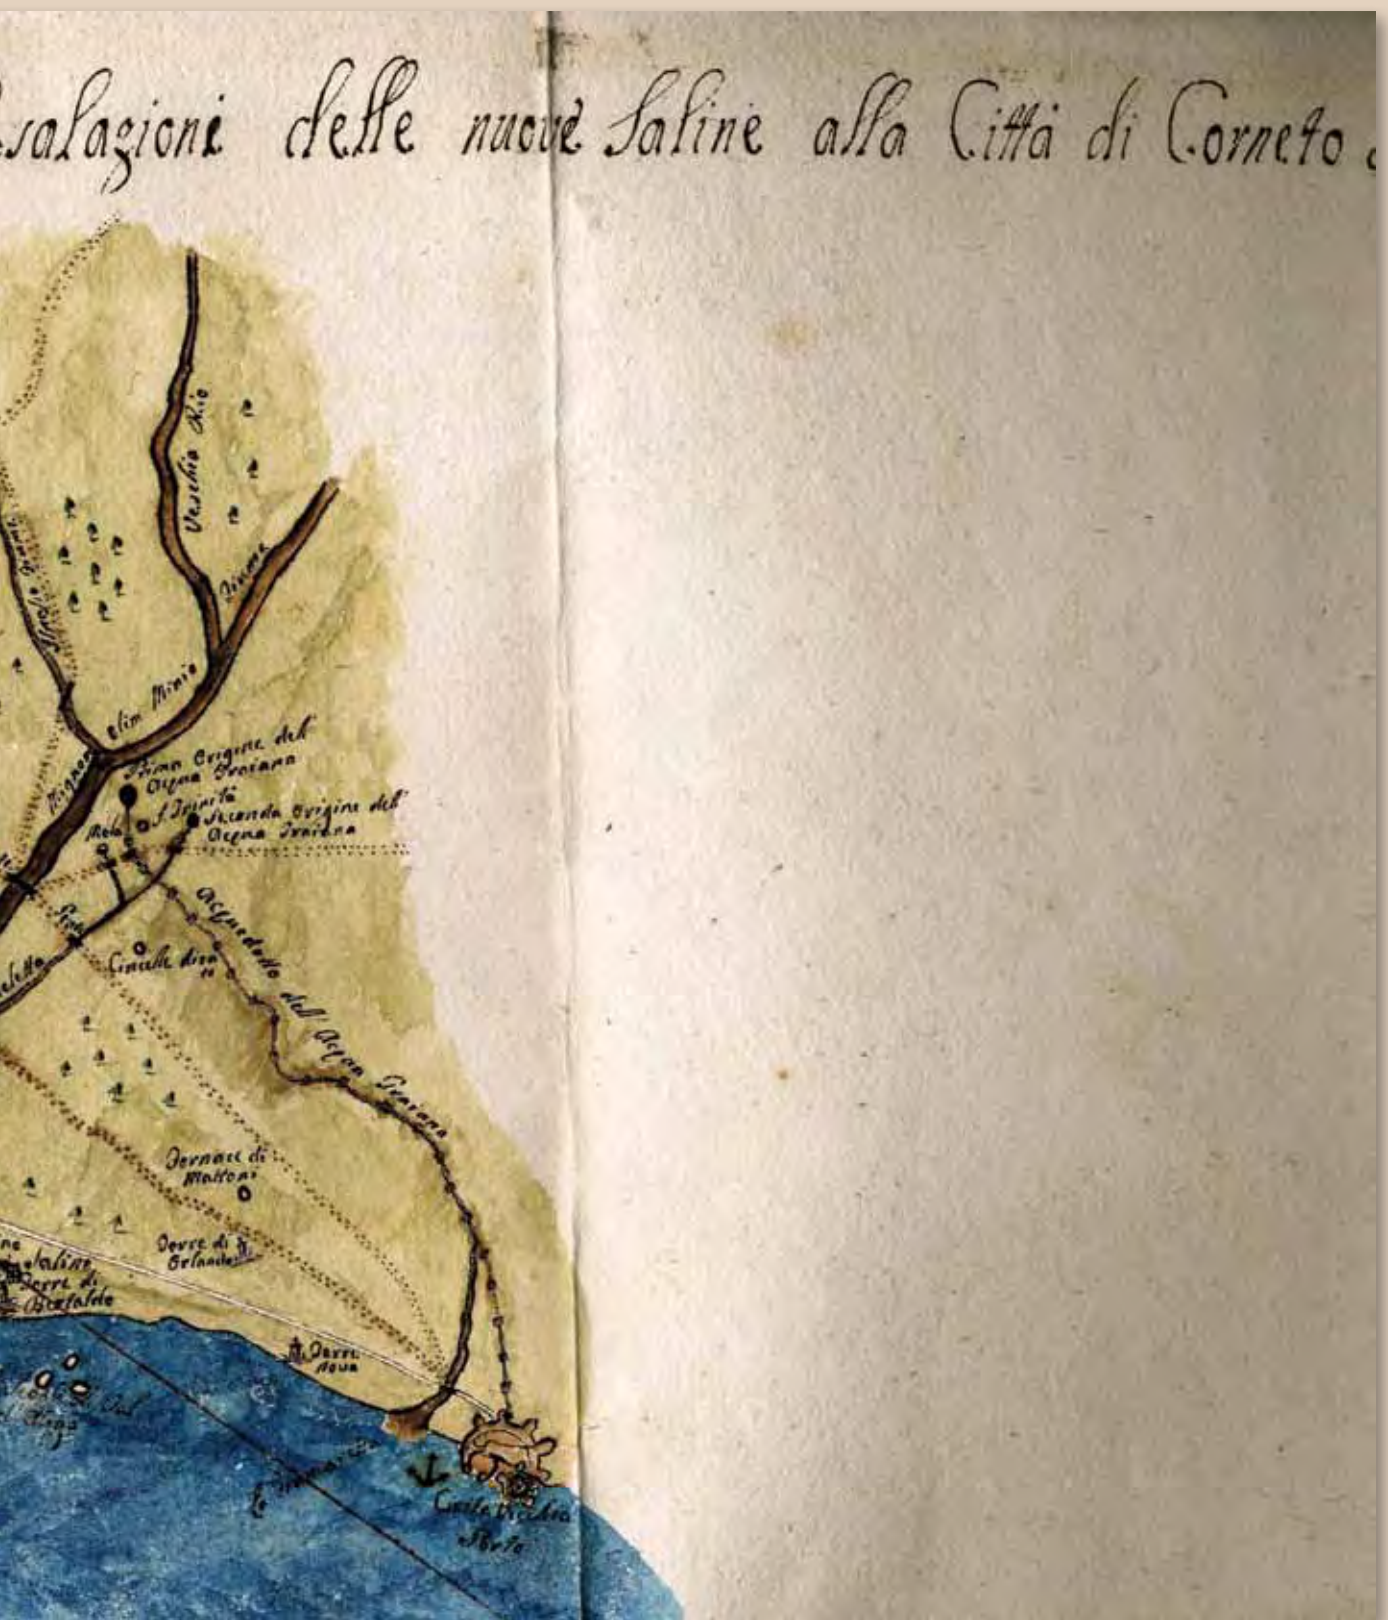 salazioni delle nuove Saline alla Città di Corneto
Veschia Rio
Fiume
olim Minio
Mignone
Prima Origine dell'
Acqua Traiana
S. Trinità
Seconda Origine dell'
Acqua Traiana
Mola
Ponte
Acquedotto dell' Acqua Traiana
Cincelle diru
te
Fornace di
Mattoni
Torre di
Orlando
Saline
Torre di
Bertaldo
Torre
Nova
Civita Vecchia
Porto